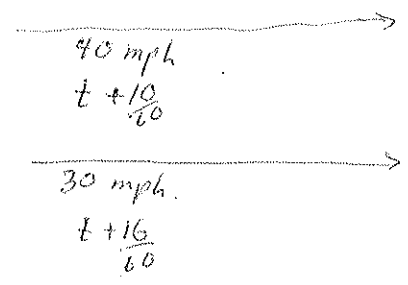 40 mph
t + 10/60
30 mph.
t + 16/60